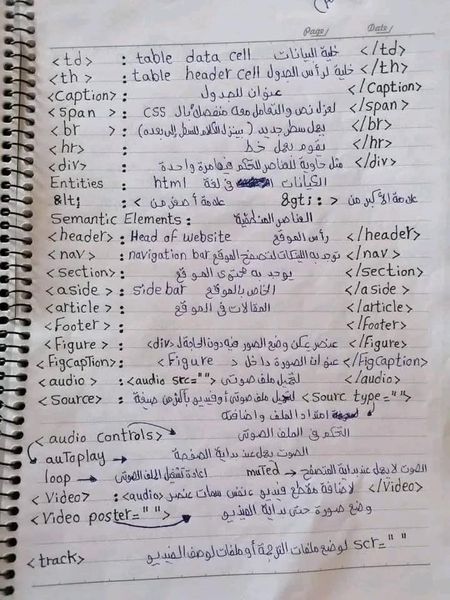 Page/ Date/
<td> : table data cell خلية البيانات </td>
<th> : table header cell خلية لرأس الجدول </th>
<Caption> : عنوان الجدول </Caption>
<span> : لعزل نص والتعامل معه منفصل بال CSS </span>
<br> : يعمل سطر جديد (بينزل الكلام للسطر إلى بعده) </br>
<hr> : يقوم بعمل خط </hr>
<div> : مثل حاوية للعناصر للتحكم فيها مرة واحدة </div>
Entities : الكيانات في لغة html
&lt; : < علامة أصغر من &gt; : > علامة الأكبر من
Semantic Elements :
<header> : Head of website رأس الموقع </header>
<nav> : navigation bar توجد به اللينكات لتصفح الموقع </nav>
<section> : يوجد به محتوى الموقع </section>
<aside> : side bar الخاص بالموقع </aside>
<article> : المقالات في الموقع </article>
<Footer> : </footer>
<Figure> : عنصر يمكن وضع الصور فيه دون الحاجة ل <div> </Figure>
<FigcapTion> : عنوان الصورة داخل د <Figure </FigCaption>
<audio> : <audio src=""> لتحميل ملف صوتى </audio>
<Source> : لتحميل ملف صوتى أو فيديو بأكثر من صيغة <Sourc type="">
امتداد الملف واضافة
<audio controls> التحكم في الملف الصوتى
auToplay الصوت يعمل عند بداية الصفحة
loop → اعادة تشغيل الملف الصوتى muTed → الصوت لا يعمل عند بداية المتصفح
<Video> : <audio> لاضافة مقطع فيديو ، نفس سمات عنصر </Video>
<Video poster=""> وضع صورة حتى بداية الفيديو
<track> لوضع ملفات الترجمة أو ملفات لوصف الفيديو scr=""